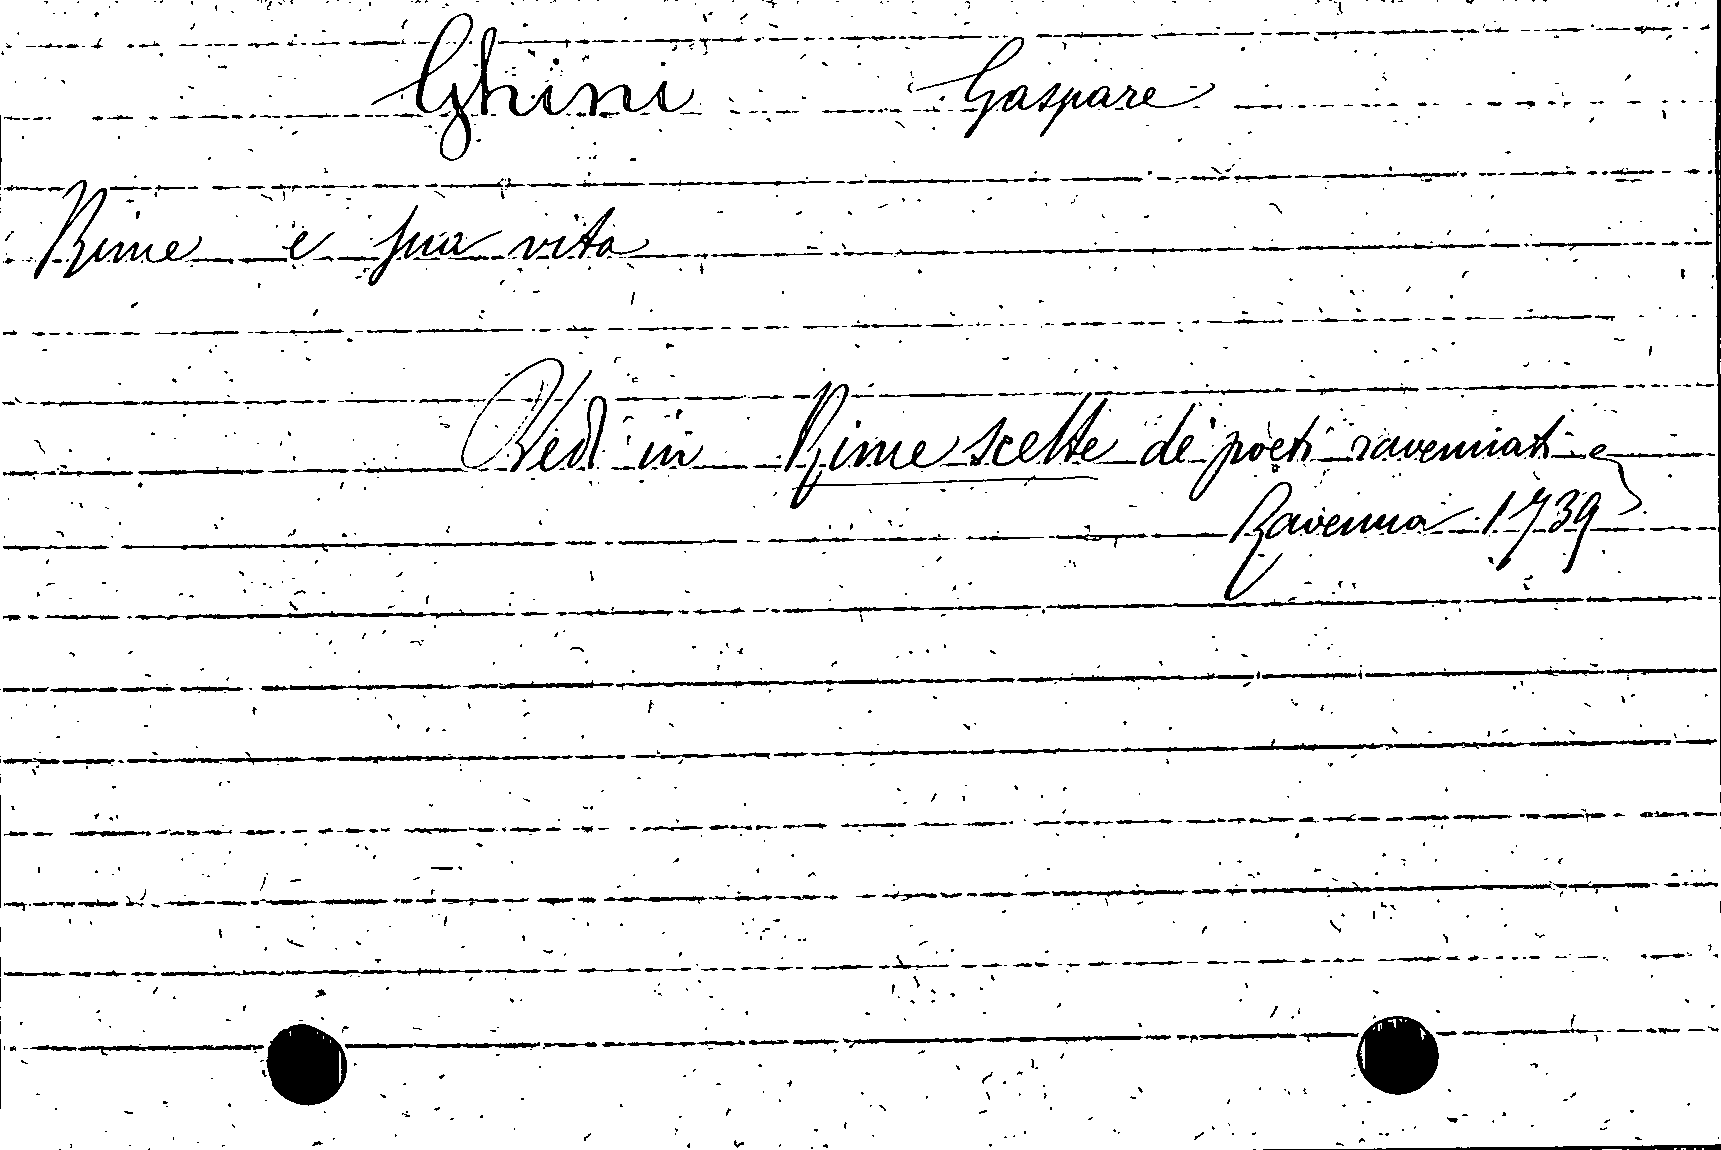 Ghini Gaspare
Rime e sua vita
Vedi in Rime scelte de' poeti ravennati e
Ravenna 1739